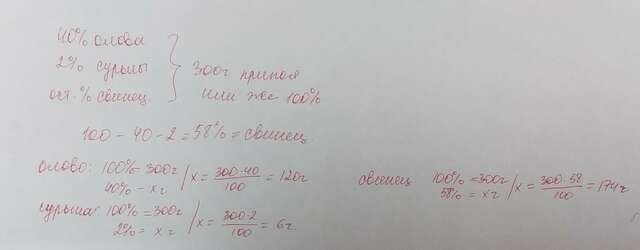 40% олова
2% сурьмы
ост.% свинец.
300г припоя
или же 100%
100 - 40 - 2 = 58% = свинец
олово: 100% - 300г / x = 300·40 / 100 = 120г
40% - x г
сурьма: 100% = 300г / x = 300·2 / 100 = 6г.
2% = x г
свинец 100% = 300г / x = 300·58 / 100 = 174г
58% = x г